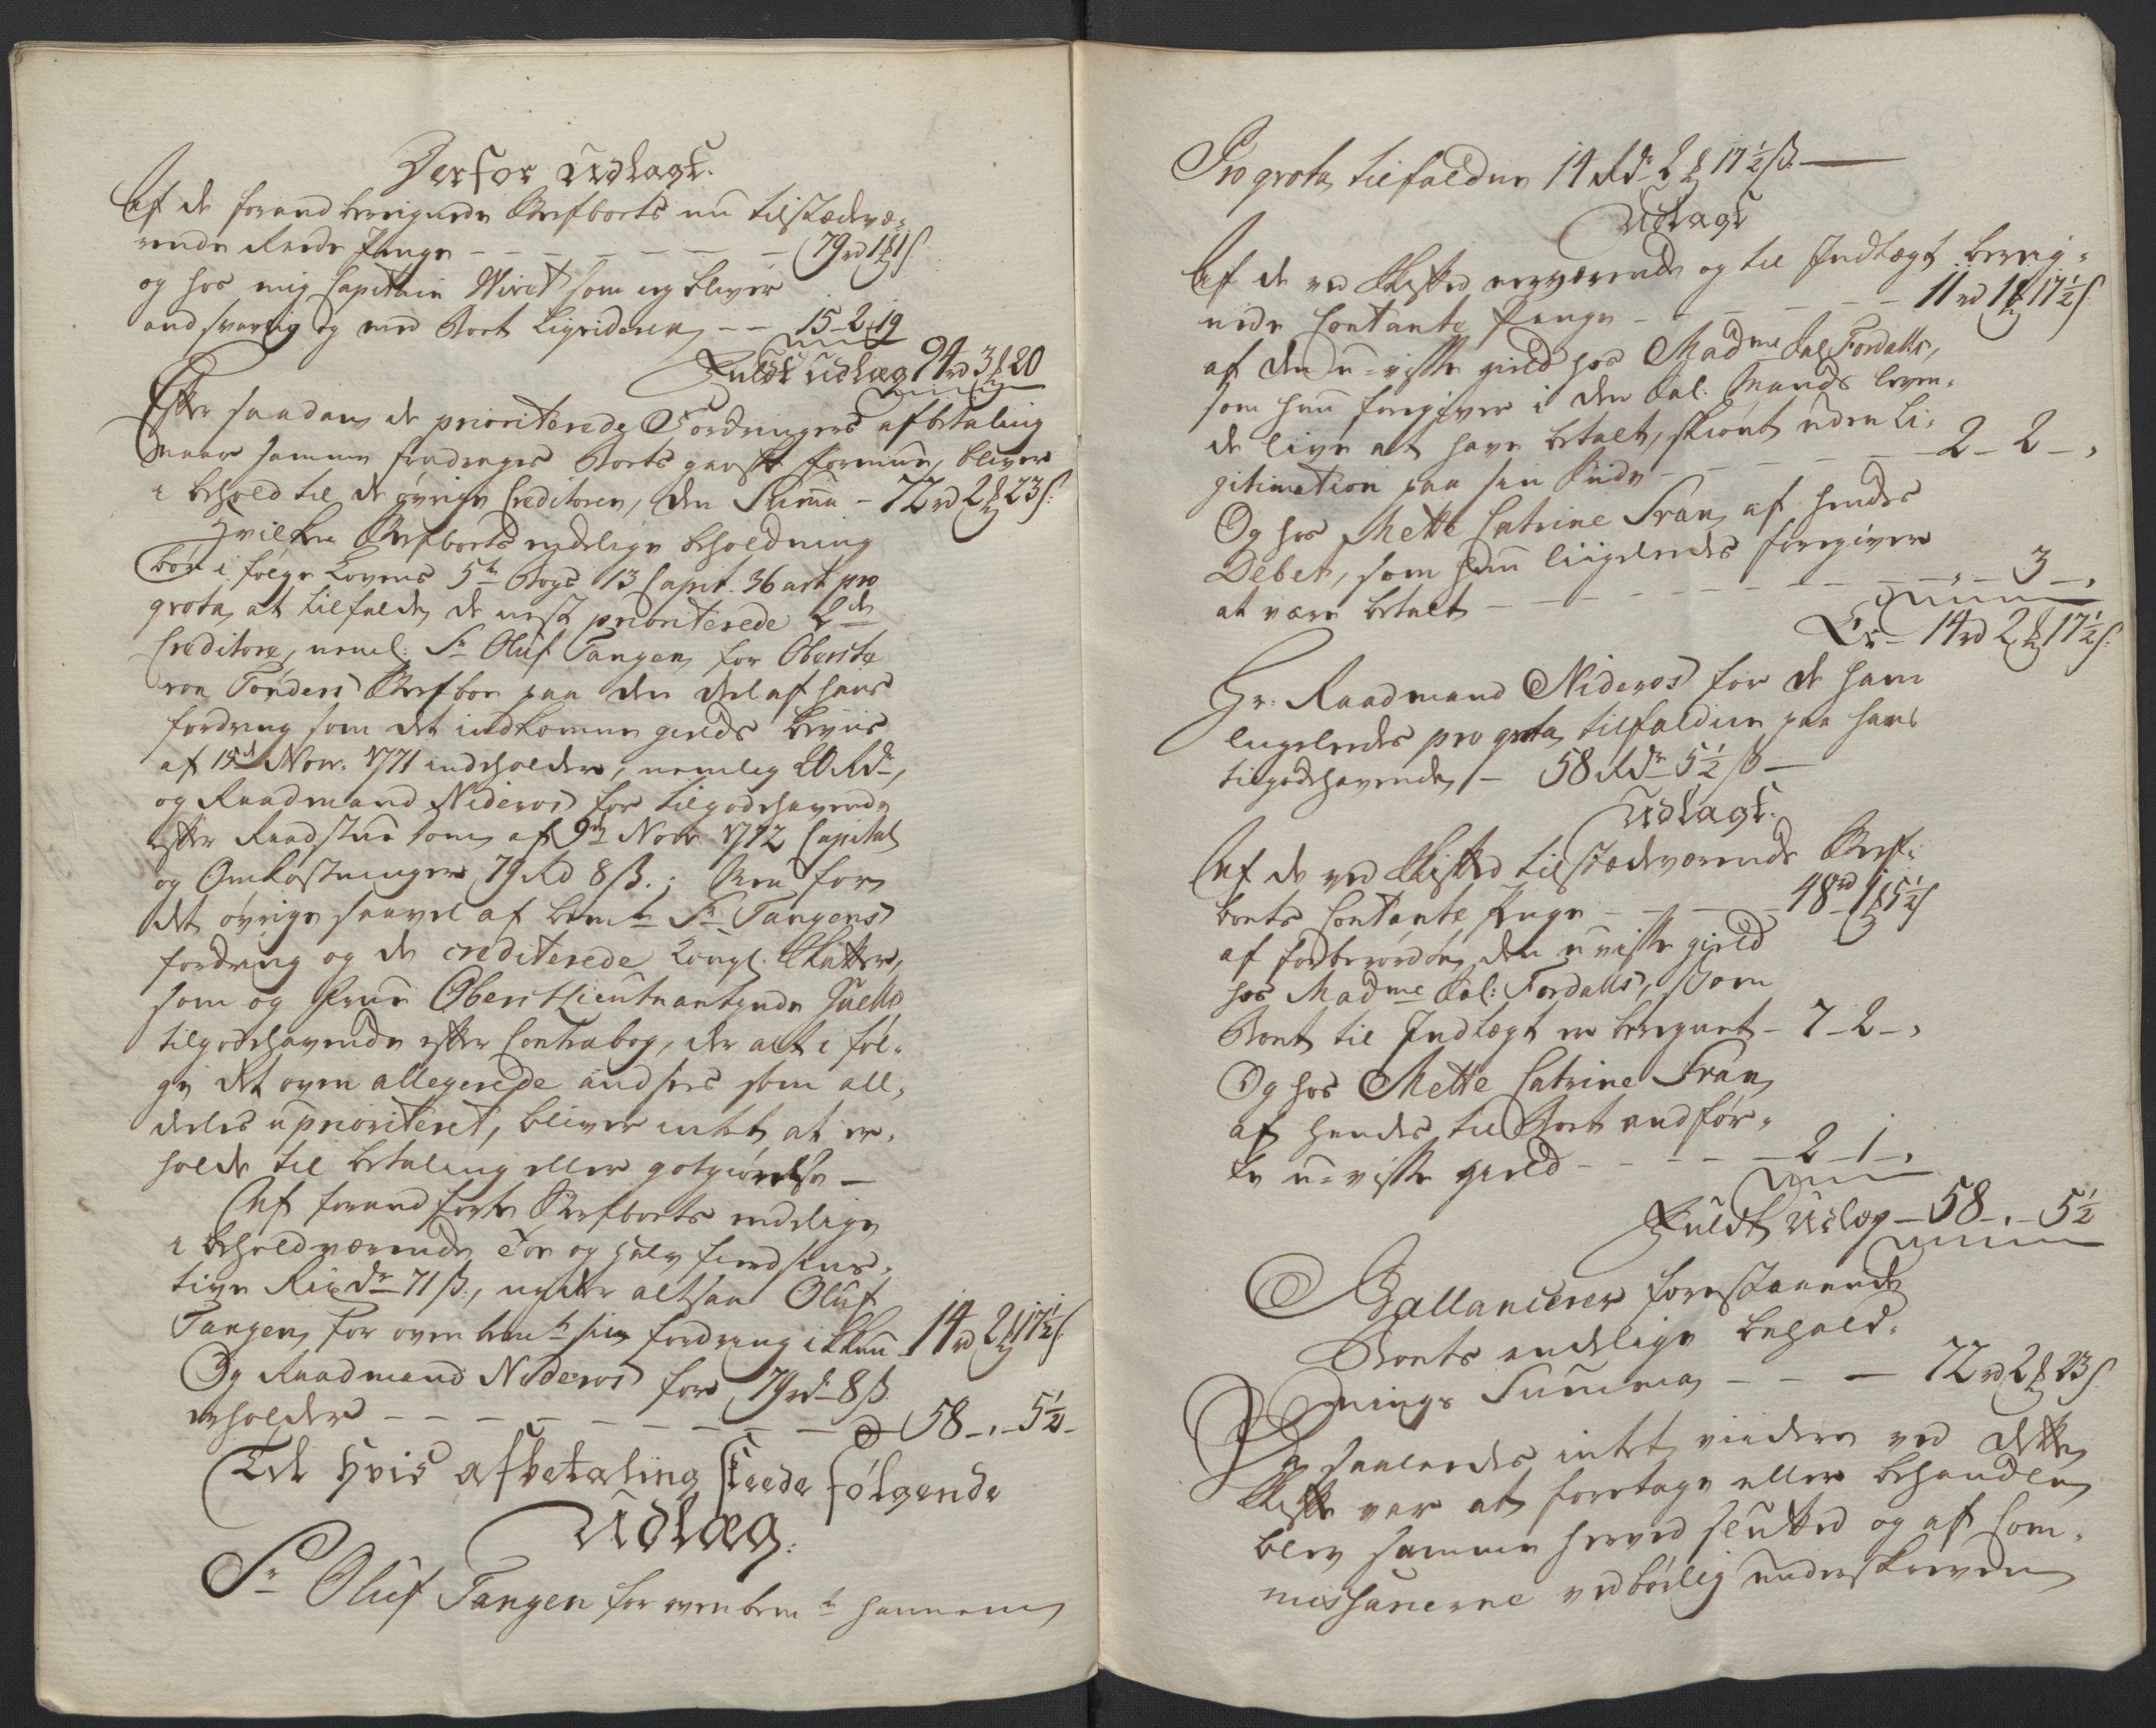 Derfor Udlagt.
Af de forand beregnede Sterfboets nu tilstædevæ-
rende Reede Penge - - - - - - - 79 rd 1 ₰ 1 s
og hos mig Capitain Wirct som ieg bliver
andsvarlig og med Boet Liqviderer - - 15 - 2 - 19
Fuldt Udlæg 94 rd 3 ₰ 20
Efter saadan de prioriterede Fordringers afbetaling
naar samme fradrages Boets gandske formue, bliver
i behold til de øvrige Creditorer, den Summa - 72 rd 2 ₰ 23 s:
Hvilken Sterfboets endelige beholdning
bør i følge Lovens 5te Bogs 13 Capit. 36 art pro
qvota at tilfalde de nest prioriterede 2de
Creditore, neml: Sr Oluf Tangen for Oberste
von Tønders Sterfboe paa den del af hans
fordring som det indkomne gields beviis
af 15d Nov. 1771 indeholder, nemlig 20 Rdr,
og Raadmand Nideros for tilgodehavende
efter Raadstue dom af 9de Novr. 1772 Capital
og Omkostninger 79 Rd 8 ß.; Men for
det øvrige saavel af bemte Sr Tangens
fordring og de crediterede Kongl. Skatter,
som og Frue Oberstlieutnantinde Juells
tilgodehavende efter Contrabog, der alt i føl-
ge det oven allegerede ansees som all-
deles upriotiteret, bliver intet at er-
holde til betaling eller godtgiørelse -
Af forand førte Sterfboets endelige
i behold værende Toe og halv fierdsins-
tive Rixdr 71 ß:, nyder altsaa Oluf
Tangen for oven bemte sin fordring i Skuu - 14 rd 2 ₰ 17½ s:
Og Raadmand Nideros for 79 rdr 8 ß.
erholder - - - - - - - - - - 58 - „ - 5½ -
Til Hvis afbetaling skeede følgende
Udlæg:
Sr Oluf Tangen for ovenbemte hannem
Pro qvota tilfaldne 14 Rdr 2 ₰ 17½ ß. -
Udlagt
Af de ved Skiftet nerværende og til Indtægt bereg-
nede Contante Penge - - - - - - 11 rd 1 ₰ 17½ s.
af den u-visse gield hos Madme Sal. Fordalls,
som hun foregiver i den Sal. Mands leven-
de live at have betalt, skiønt uden Li-
gitimation paa sin Side - - - - - - 2 - 2 - „
Og hos Mette Catrine Fran af hendes
Debet, som hun liigeledes foregiver
at være betalt - - - - - - - - - „ - 3 - „
Er - 14 rd 2 ₰ 17½ s:
Hr. Raadmand Nideros for de ham
liigeledes pro qvota tilfaldne paa hans
tilgodehavende - 58 Rdr 5½ ß -
Udlagt.
Af de ved Skiftet tilstædeværende Sterf-
boets Contante Penge - - - - 48 rd 1 ₰ 5½ s
af forberørde den uvisse gield
hos Madme Sal: Fordalls, som
Boet til Indtægt er beregnet - 7 - 2 - „
Og hos Mette Catrine Fran
af hendes til Boet andfør-
te u-visse gield - - - - - - 2 - 1 - „
Fuldt Udlæg - 58 - „ - 5½
Ballancerer forestaaende
Boets endelige behold-
nings Summa - - - 72 rd 2 ₰ 23 s.
Da saaledes intet viidere ved dette
Skifte var at foretage eller behandle
blev samme herved sluttet og af Com-
missarierne vedbørlig underskreven